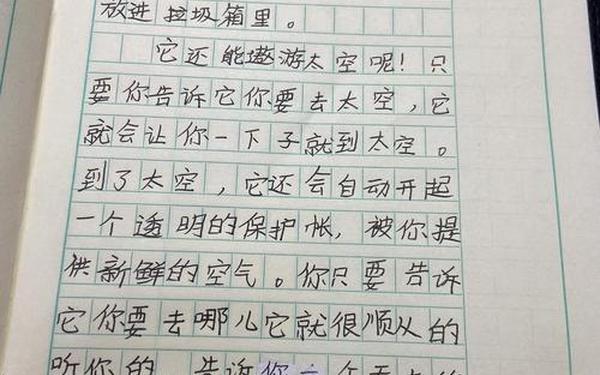 放进垃圾箱里。
它还能遨游太空呢！只
要你告诉它你要去太空，它
就会让你一下子就到太空。
到了太空，它还会自动开起
一个透明的保护帐，被你提
供新鲜的空气。你只要告诉
它你要去哪儿它就很顺从的
听你的，告诉你一个天上的